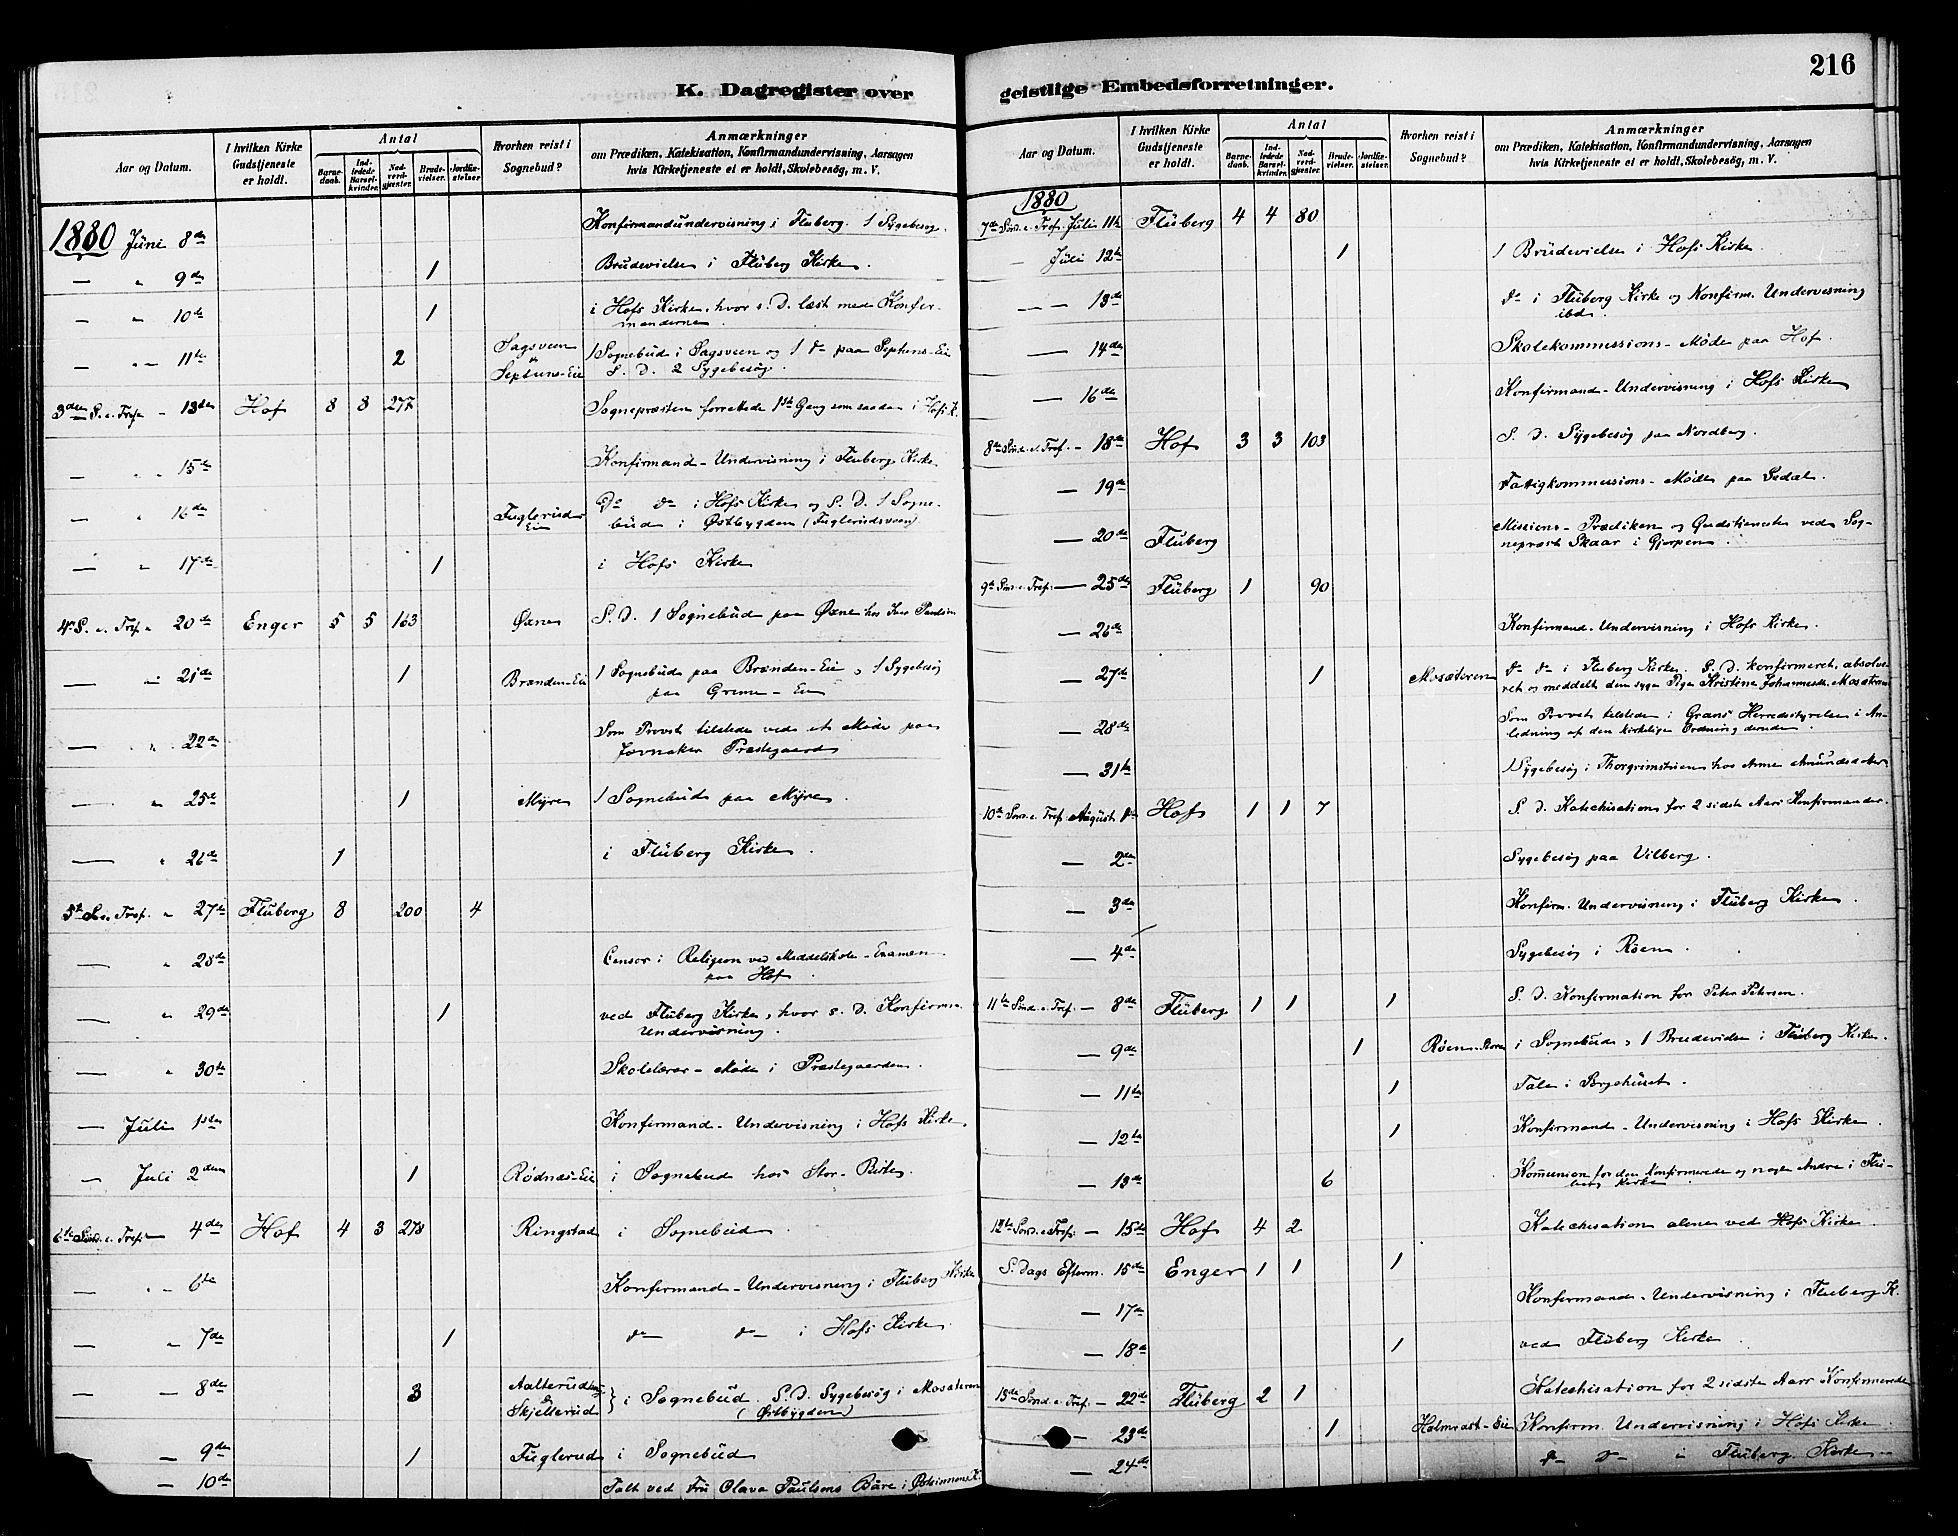 216
K. Dagregister over geistlige Embedsforretninger.
Aar og Datum.
I hvilken Kirke Gudstjeneste er holdt.
Antal
Barnedaab.
Indledede Barselkvinder.
Nadverdgjester.
Brudevielser.
Jordfæstelser
Hvorhen reist i Sognebud?
Anmærkninger
om Prædiken, Katekisation, Konfirmandundervisning, Aarsagen
hvis Kirketjeneste ei er holdt, Skolebesøg, m. V.
1880 Juni 8de Konfirmandundervisning i Fluberg. 1 Sygebesøg.
— " 9de 1 Brudevielse i Fluberg Kirke.
— " 10de 1 i Hofs Kirke, hvor s. D. læst med Konfirmanderne.
— " 11te 2 Sagsveen & Septuns-Eie 1 Sognebud i Sagsveen og 1 do paa Septuns-Eie
S. D. 2 Sygebesøg.
3die S. e. Tref. - 13de Hof 8 8 277 Sognepræsten forrettede 1ste Gang som saadan i Hofs K.
" " 15de Konfirmand-Undervisning i Fluberg Kirke
— " 16de Fuglerud-Eie Do do i Hofs Kirke og S. D. 1 Sognebud i Østbygden (Fuglerudsveen)
— " 17de 1 i Hofs Kirke
4. S. e. Tref. " 20de Enger 5 5 163 Øxne S. D. 1 Sognebud paa Øxne hos
— " 21de 1 Brænden-Eie 1 Sognebud paa Brænden-Eie, 1 Sygebesøg
paa Grime-Eie
— " 22de Som Provst tilstede ved et Møde paa
Jevnaker Præstegaard
— " 25de 1 Myre 1 Sognebud paa Myre.
— " 26de 1 i Fluberg Kirke.
5te S. e. Tref. " 27de Fluberg 8 200 4
— " 28de Censor i Religion ved Middelskole-Examen
paa Hof.
— " 29de 1 ved Fluberg Kirke, hvor s. D. Konfirm.
Undervisning.
— " 30te Skolelærer-Møde i Præstegaarden.
— Juli 1ste Konfirmand-Undervisning i Hofs Kirke
— Juli 2den 1 Rødnæs-Eie i Sognebud hos Stor-Birte.
6te Sønd. e. Tref. — 4de Hof 4 3 278 Ringstad i Sognebud
— " 6te Konfirmand-Undervisning i Fluberg Kirke
— " 7de 1 do do i Hofs Kirke
— — 8de 3 Aalterud & Skjellerud } i Sognebud. S. D. Sygebesøg i Mosateren
(Østbygden)
— 9de 1 Fuglerud i Sognebud
— 10de Talt ved Fru Olava Paulsons Baare i Østsinnens K.
Aar og Datum.
I hvilken Kirke Gudstjeneste er holdt.
Antal
Barnedaab.
Indledede Barselkvinder.
Nadverdgjester.
Brudevielser.
Jordfæstelser.
Hvorhen reist i Sognebud?
Anmærkninger
om Prædiken, Katekisation, Konfirmandundervisning, Aarsagen
hvis Kirketjeneste ei er holdt, Skolebesøg, m. V.
1880
7de Sønd. e. Tref. Juli 11te Fluberg 4 4 80
— Juli 12te 1 1 Brudevielse i Hofs Kirke.
— 13de do i Fluberg Kirke og Konfirm. Undervisning
ibd.
— 14de Skolekommissions-Møde paa Hof.
— 16de Konfirmand-Undervisning i Hofs Kirke
8de Sønd. e. Tref. - 18de Hof 3 3 103 S. D. Sygebesøg paa Nordberg.
— 19de Fattigkommissions-Møde paa Sedal.
— 20de Fluberg Missions-Prædiken og Gudstjeneste ved Sognepræst Skaar i Gjerpen.
9de Sønd. e. Tref. — 25de Fluberg 1 90
— 26de Konfirmand-Undervisning i Hofs Kirke.
— 27de 1 Mosateren do do i Fluberg Kirke. S. D. konfirmeret, absolveret og meddelt den syge Pige Kristine Johannesdr. Mosateren
— 28de Som Provst tilstede i Grans Herredsstyrelse i Anledning af den kirkelige Ordning
— 31te 1 Sygebesøg i Thorgrimstuen hos Anne Amundsdatter
10de Sønd. e. Tref. August 1ste Hof 1 1 7 S. D. Katechisation for 2 sidste Aars Konfirmander.
— 2den Sygebesøg paa Vilberg.
— 3de Konfirm. Undervisning i Fluberg Kirke.
— 4de Sygebesøg i Røen.
11te Sønd. e. Tref. — 8de Fluberg 1 1 1 S. D. Konfirmation for Peter Petersen.
— 9de 1 Røen i Sognebud, 1 Brudevielse i Fluberg Kirke.
— 11te 1 Tale i Sørgehuset.
— 12te 1 Konfirmand-Undervisning i Hofs Kirke.
— 13de 6 Komunion for den Konfirmerede og nogle Andre i Fluberg Kirke
12te Sønd. e. Tref. — 15de Hof 4 2 Katechisation alene ved Hofs Kirke.
S. Dags Efterm. 15de Enger 1 1 1
— 17de Konfirmand-Undervisning i Fluberg K.
— 18de 1 ved Fluberg Kirke.
13de Sønd. e. Tref. — 22de Fluberg 2 1 Katechisation for 2 sidste Aars Konfirmerede
— 23de 1 Holmrast-Eie Konfirm. Undervisning i Hofs Kirke.
— 24de do do i Fluberg Kirke.